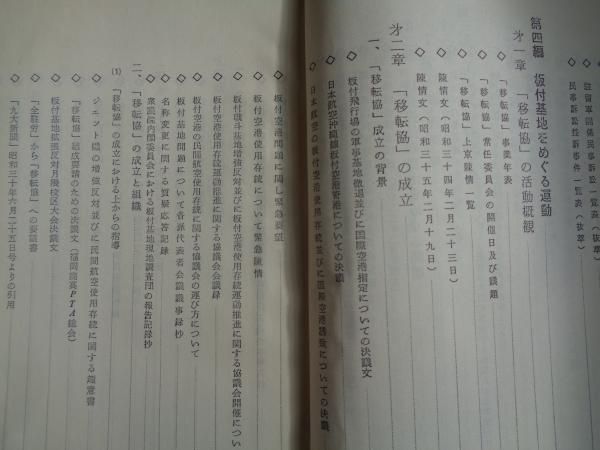 ◇ 駐留軍関係民事訴訟一覧表(抜萃)
◇ 民事訴訟控訴事件一覧表(抜萃)
第四編 板付基地をめぐる運動
才一章 「移転協」の活動概観
◇ 「移転協」事業年表
◇ 「移転協」常任委員会の開催日及び議題
◇ 「移転協」上京陳情一覧
◇ 陳情文(昭和三十四年二月二十三日)
◇ 陳情文(昭和三十五年二月十九日)
才二章 「移転協」の成立
一、「移転協」成立の背景
◇ 板付飛行場の軍事基地撤退並びに国際空港指定についての決議文
◇ 日本航空沖縄線板付空港寄港についての決議
◇ 日本航空の板付空港使用存続並びに国際空港誘致についての決議
◇ 板付空港問題に関し緊急要望
◇ 板付空港使用存続について緊急陳情
◇ 板付戦斗基地増強反対並びに板付空港使用存続運動推進に関する協議会開催につい
◇ 板付空港使用存続運動推進に関する協議会会議録
◇ 板付空港の民間航空使用存続に関する協議会の運び方について
◇ 板付基地問題について各派代表者会議議事録抄
◇ 名称変更に関する質疑応答記録
◇ 衆議院内閣委員会における板付基地現地調査団の報告記録抄
二、「移転協」の成立と組織
(1) 「移転協」の成立における上からの指導
◇ ジェット機の増強反対並びに民間航空使用存続に関する趣意書
◇ 「移転協」結成要請のための決議文(福岡高高PTA総会)
◇ 板付基地拡張反対月飛校区大会決議文
◇ 「全駐労」から「移転協」への要望書
◇ 「九大新聞」昭和三十六月二十五日号よりの引用